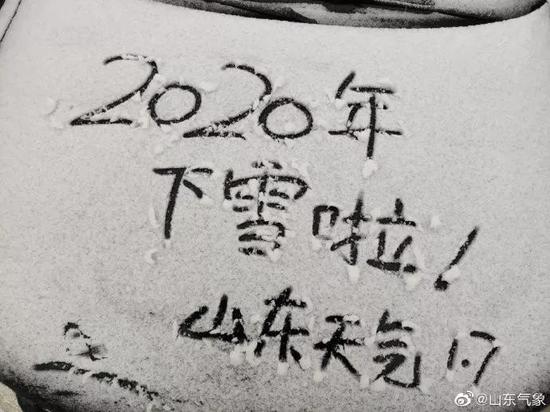 2020年
下雪啦！
山东天气 1.7
@山东气象